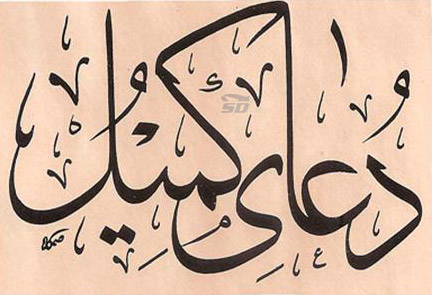 دُعای کمیل
SD